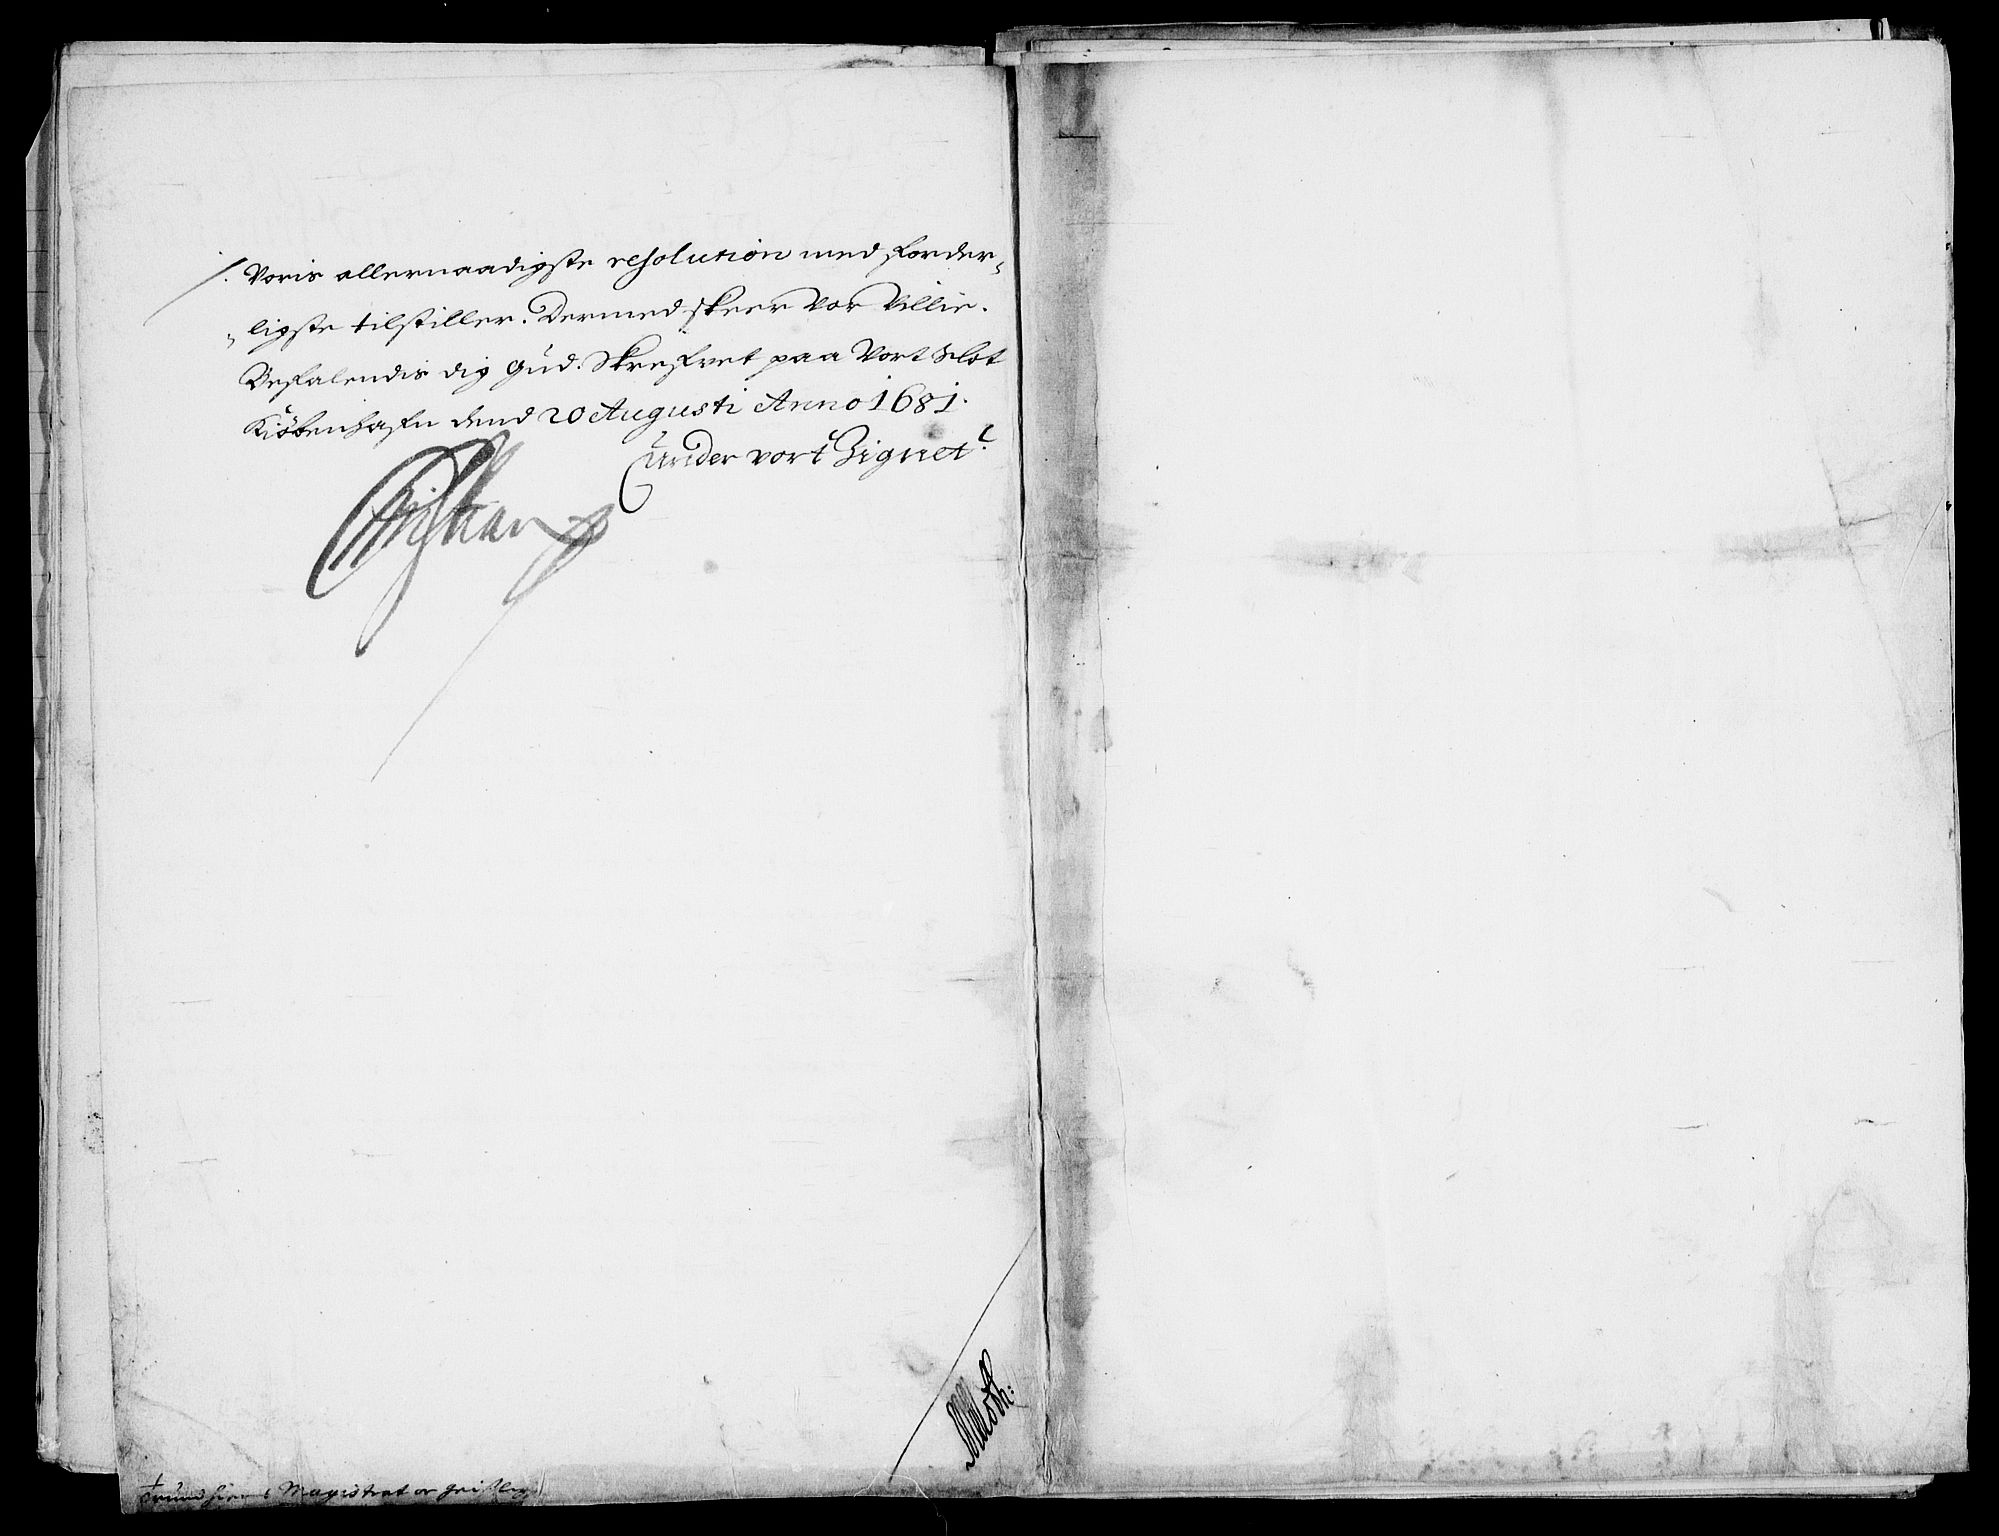 /. Voris allernaadigste resolution med forder-
-ligste tilstiller. Dermed skeer Vor Villie.
Befalendis dig Gud. Skrefvet paa Vort Slot
Kiöbenhafn dend 20 Augusti Anno 1681.
Under vort Zignet.
Christian
MMoth:
Trundhiems Magistrat oc geistlig